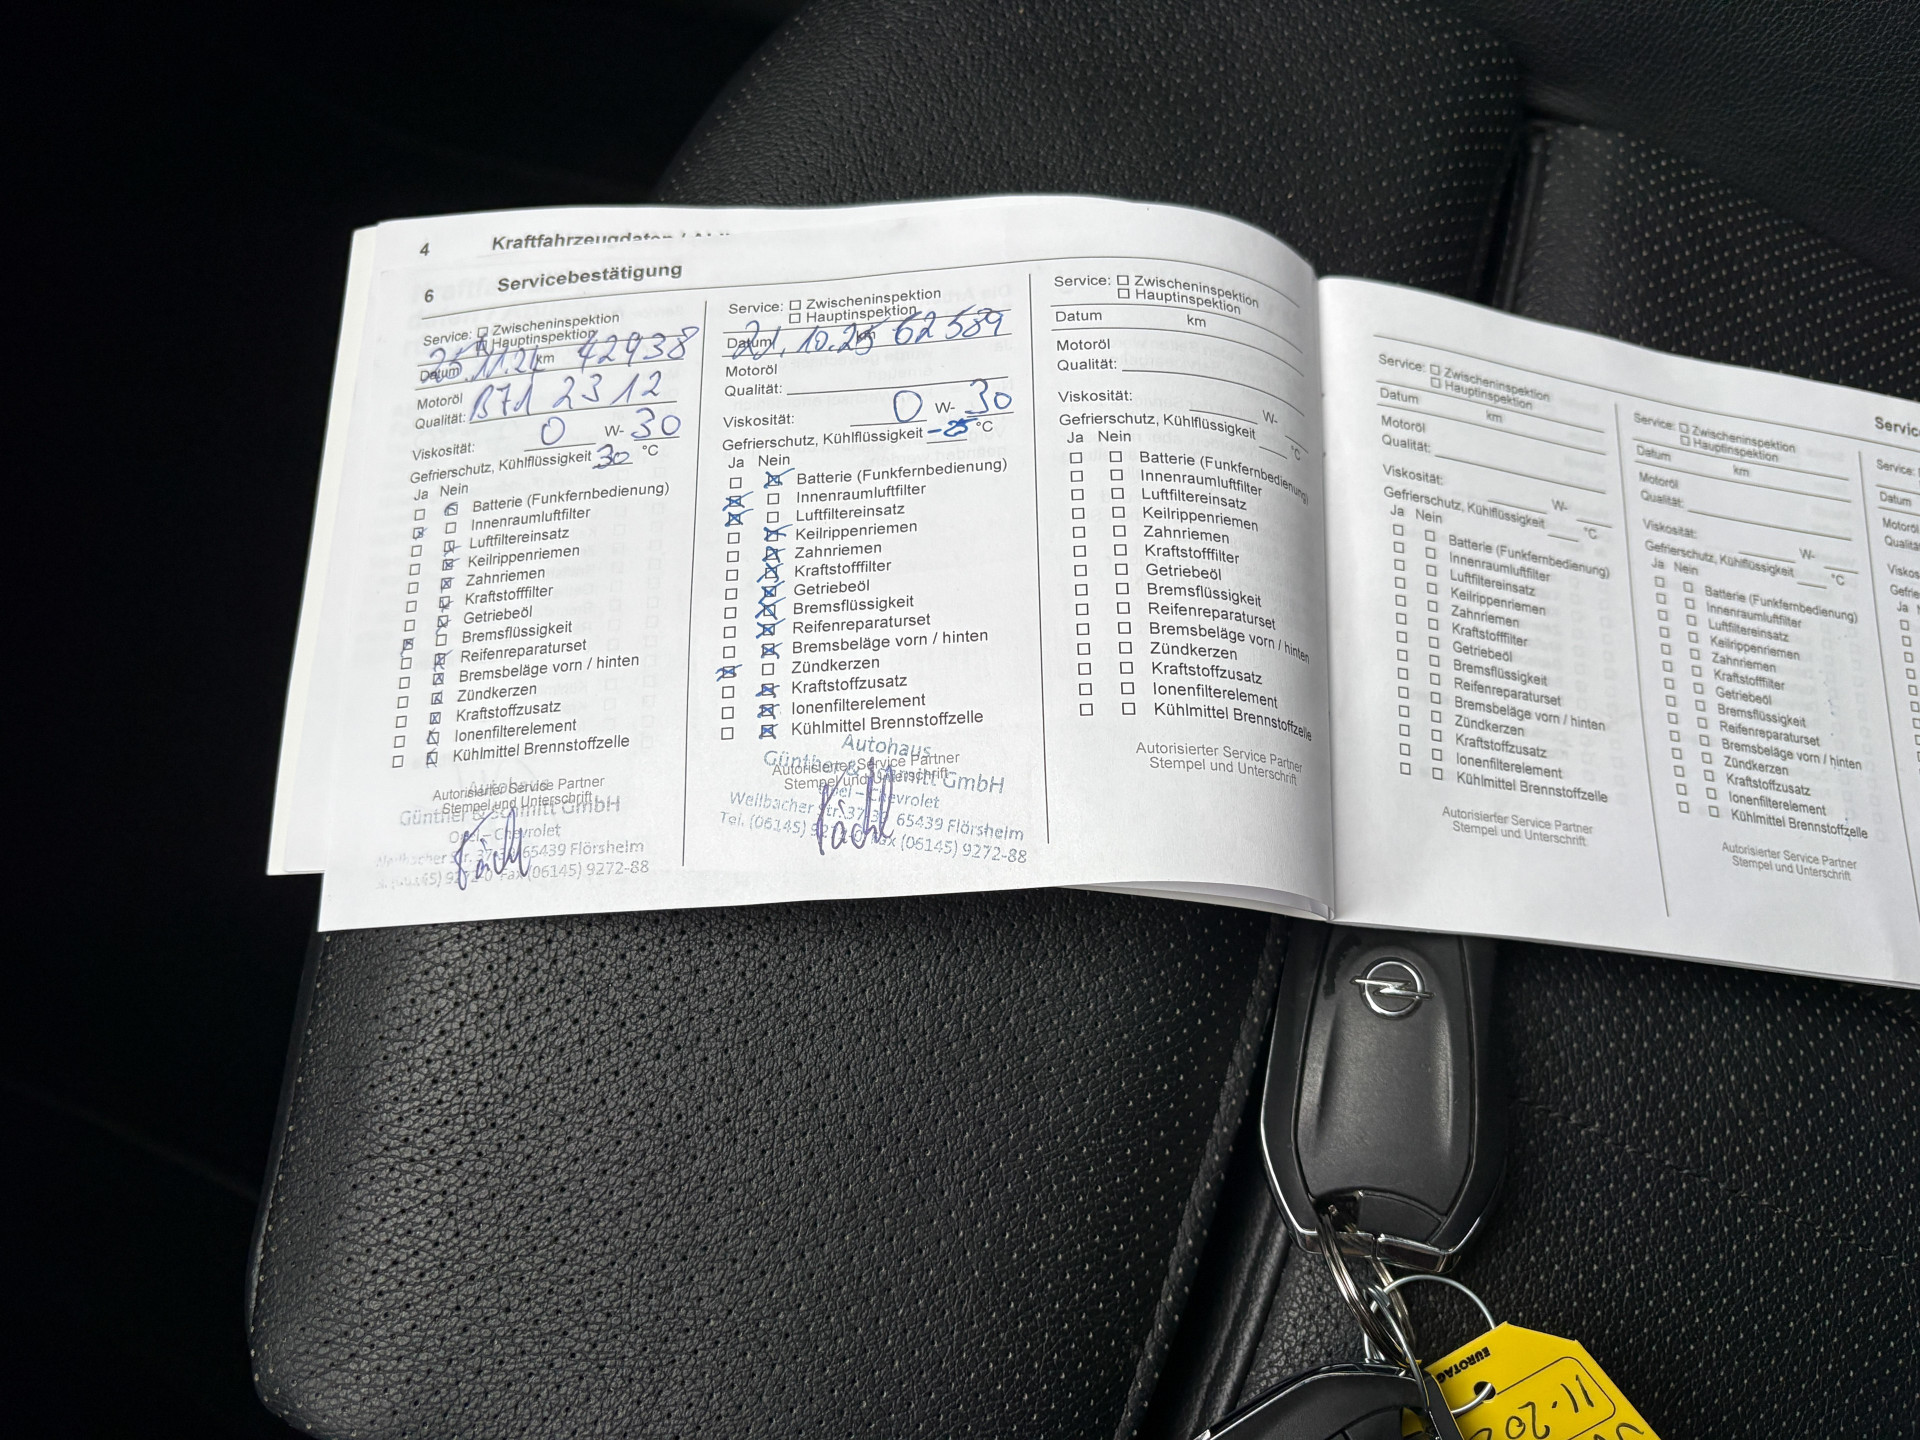 4 Kraftfahrzeugdaten
6 Servicebestätigung
Service: Zwischeninspektion
Hauptinspektion
Datum 25.11.24 km 42938
Motoröl
Qualität: B71 2312
Viskosität: 0 W- 30
Gefrierschutz, Kühlflüssigkeit 30 °C
Ja Nein
Batterie (Funkfernbedienung)
Innenraumluftfilter
Luftfiltereinsatz
Keilrippenriemen
Zahnriemen
Kraftstofffilter
Getriebeöl
Bremsflüssigkeit
Reifenreparaturset
Bremsbeläge vorn / hinten
Zündkerzen
Kraftstoffzusatz
Ionenfilterelement
Kühlmittel Brennstoffzelle
Autorisierter Service Partner
Stempel und Unterschrift
Autohaus
Günther & Schmitt GmbH
Opel – Chevrolet
65439 Flörsheim
Fax (06145) 9272-88
Service: Zwischeninspektion
Hauptinspektion
Datum 21.10.25 km 62589
Motoröl
Qualität:
Viskosität: 0 W- 30
Gefrierschutz, Kühlflüssigkeit -25 °C
Ja Nein
Batterie (Funkfernbedienung)
Innenraumluftfilter
Luftfiltereinsatz
Keilrippenriemen
Zahnriemen
Kraftstofffilter
Getriebeöl
Bremsflüssigkeit
Reifenreparaturset
Bremsbeläge vorn / hinten
Zündkerzen
Kraftstoffzusatz
Ionenfilterelement
Kühlmittel Brennstoffzelle
Autorisierter Service Partner
Stempel und Unterschrift
Autohaus
Günther & Schmitt GmbH
Opel – Chevrolet
Weilbacher Str. 37 65439 Flörsheim
Tel. (06145) 9272-0 Fax (06145) 9272-88
Service: Zwischeninspektion
Hauptinspektion
Datum km
Motoröl
Qualität:
Viskosität: W-
Gefrierschutz, Kühlflüssigkeit °C
Ja Nein
Batterie (Funkfernbedienung)
Innenraumluftfilter
Luftfiltereinsatz
Keilrippenriemen
Zahnriemen
Kraftstofffilter
Getriebeöl
Bremsflüssigkeit
Reifenreparaturset
Bremsbeläge vorn / hinten
Zündkerzen
Kraftstoffzusatz
Ionenfilterelement
Kühlmittel Brennstoffzelle
Autorisierter Service Partner
Stempel und Unterschrift
Service: Zwischeninspektion
Hauptinspektion
Datum km
Motoröl
Qualität:
Viskosität: W-
Gefrierschutz, Kühlflüssigkeit °C
Ja Nein
Batterie (Funkfernbedienung)
Innenraumluftfilter
Luftfiltereinsatz
Keilrippenriemen
Zahnriemen
Kraftstofffilter
Getriebeöl
Bremsflüssigkeit
Reifenreparaturset
Bremsbeläge vorn / hinten
Zündkerzen
Kraftstoffzusatz
Ionenfilterelement
Kühlmittel Brennstoffzelle
Autorisierter Service Partner
Stempel und Unterschrift
Service: Zwischeninspektion
Hauptinspektion
Datum km
Motoröl
Qualität:
Viskosität: W-
Gefrierschutz, Kühlflüssigkeit °C
Ja Nein
Batterie (Funkfernbedienung)
Innenraumluftfilter
Luftfiltereinsatz
Keilrippenriemen
Zahnriemen
Kraftstofffilter
Getriebeöl
Bremsflüssigkeit
Reifenreparaturset
Bremsbeläge vorn / hinten
Zündkerzen
Kraftstoffzusatz
Ionenfilterelement
Kühlmittel Brennstoffzelle
Autorisierter Service Partner
Stempel und Unterschrift
Servic
Service:
Datum
Motoröl
Qualitä
Viskos
Gefrie
Ja
EUROTAG
11-202